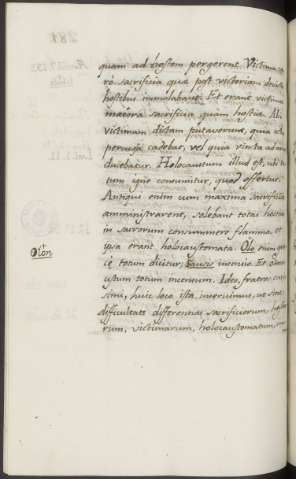 quam ad hostem pergerent. Victima ve
rò sacrificia quae post victoriam devictis
hostibus immolabant. Et erant victimae
maiora sacrificia, quam hostiae. Alii
victimam dictam putaverunt, quia ictu
percussa cadebat, vel quia vincta ad aras
ducebatur. Holocaustum illud est, ubi to
tum igne consumitur, quod offertur.
Antiqui enim cum maxima sacrificia
amministrarent, solebant totas hostias
in sacrorum consummere flamma, et
ipsa erant holocaustomata. Olo enim grae
cè totum dicitur, causis incensio. Et olocau
stum totum incensum. Ideo, fratres caris
simi, huic loco ista inseruimus, ut sine
difficultate differentias sacrificiorum, hostia
rum, victimarum, holocaustomatum
Olon